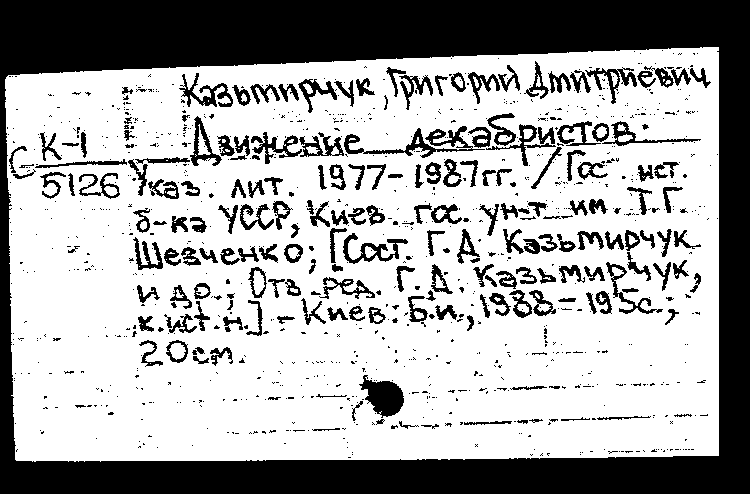 Казьмирчук, Григорий Дмитриевич
К-1
5126
Движение декабристов:
Указ. лит. 1977-1987гг. / Гос. ист.
б-ка УССР, Киев. гос. ун-т им. Т.Г.
Шевченко; [Сост. Г.Д. Казьмирчук
и др.; Отв. ред. Г.Д. Казьмирчук,
к.ист.н.] - Киев: Б.и., 1988 - 195с.;
20см.